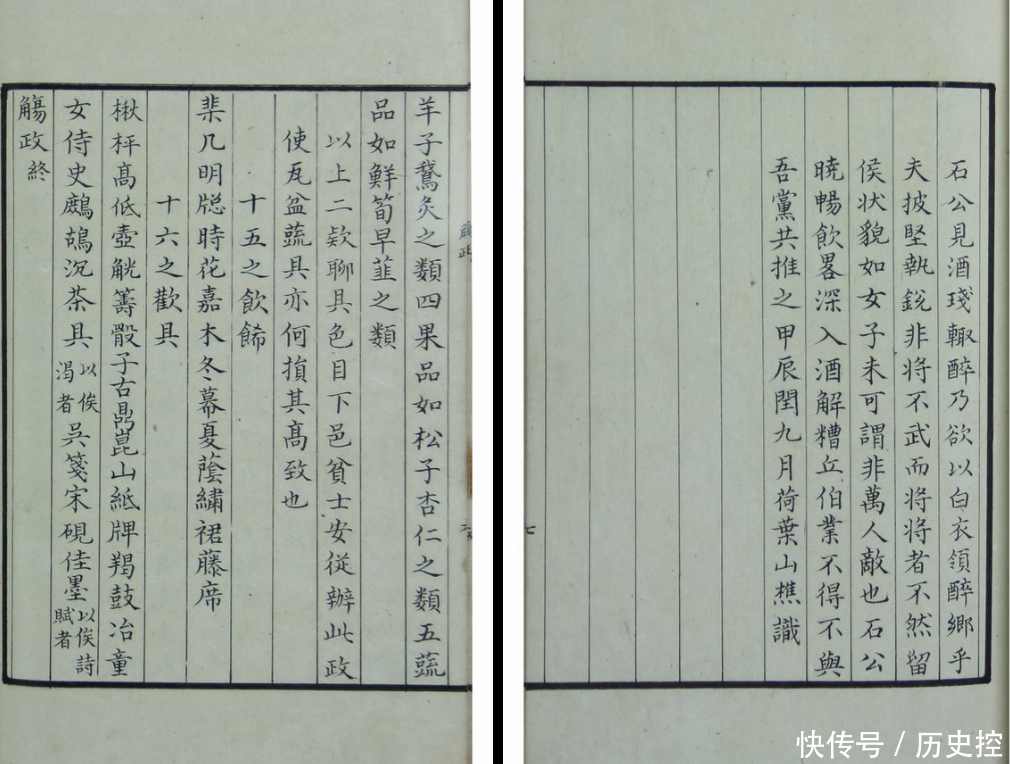 石公見酒琖輙醉乃欲以白衣領醉鄉乎
夫披堅執銳非将不武而将将者不然留
侯状貌如女子未可謂非萬人敵也石公
曉暢飲畧深入酒解糟丘伯業不得不與
吾黨共推之甲辰閏九月荷葉山樵識
七
羊子鵞炙之類四果品如松子杏仁之類五蔬
品如鮮筍早韮之類
以上二欵聊具色目下邑貧士安從辦此政
使瓦盆蔬具亦何損其高致也
十五之飲餙
棐几明牕時花嘉木冬幕夏蔭繡裙藤席
十六之歡具
楸枰高低壺觥籌骰子古鼎崑山紙牌羯鼓冶童
女侍史鷓鴣沉茶具以俟渴者吳箋宋硯佳墨以俟詩賦者
觴政終
快传号 / 历史控